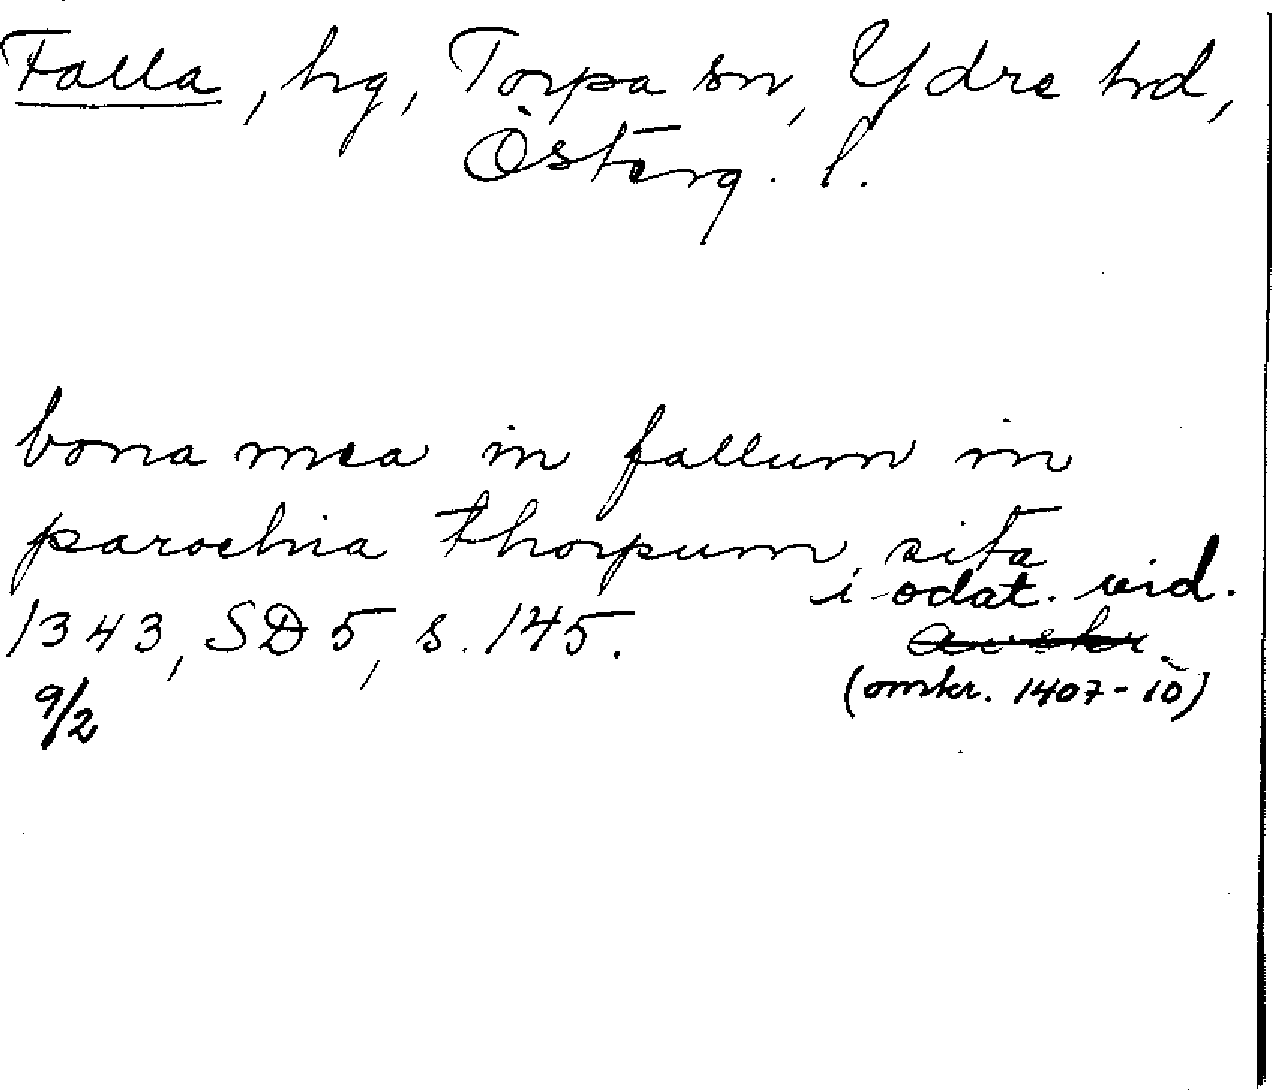 Falla, hg, Torpa sn, Ydre hd,
Österg. l.
bona mea in fallum in
parochia thorpum sita
1343, SD 5, s. 145.
9/2
i odat. vid.
avskr.
(omkr. 1407-10)